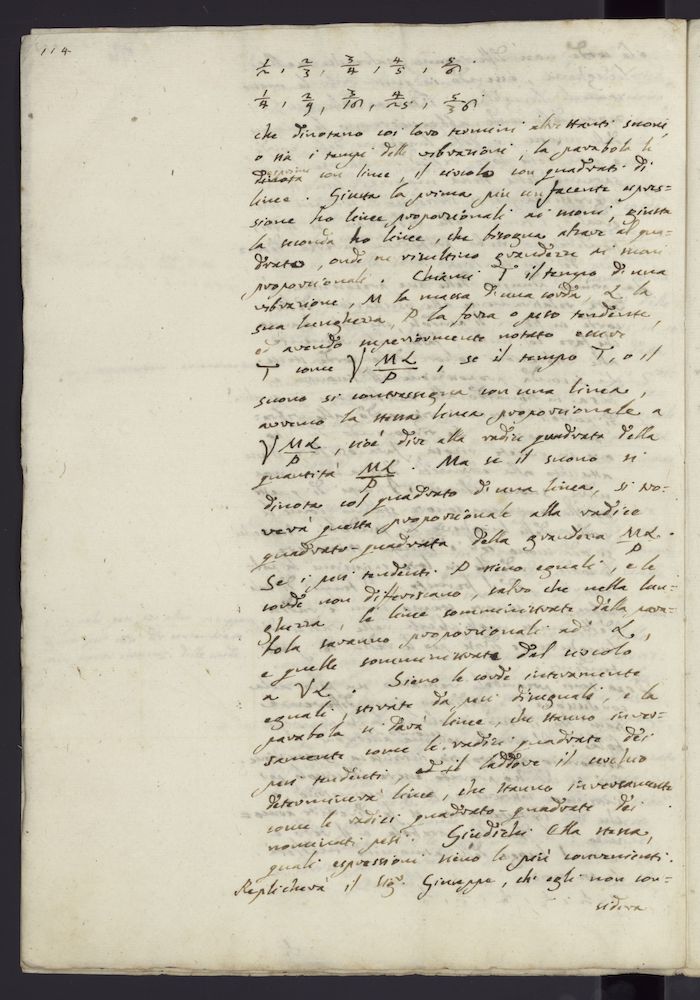 114
1/2, 2/3, 3/4, 4/5, 5/6.
1/4, 2/9, 3/16, 4/25, 5/36.
che dinotano coi loro termini altrettanti suoni,
o sia i tempi delle vibrazioni, la parabola li
esprime con linee, il circolo con quadrati di
linee. Giusta la prima più confacente espres=
sione ho linee proporzionali ai suoni, giusta
la seconda ho linee, che bisogna alzare al qua=
drato, onde ne risultino grandezze ai suoni
proporzionali. Chiami T il tempo di una
vibrazione, M la massa di una corda, L la
sua lunghezza, P la forza o peso tendente,
e avendo superiormente notato essere
T come √ML/P, se il tempo T, o il
suono si contrassegna con una linea,
avremo la stessa linea proporzionale a
√ML/P, cioè dire alla radice quadrata della
quantità ML/P. Ma se il suono si
dinota col quadrato di una linea, si tro=
verà questa proporzionale alla radice
quadrato-quadrata della grandezza ML/P.
Se i pesi tendenti P sieno eguali, e le
corde non differiscano, salvo che nella lun=
ghezza, le linee somministrate dalla para=
bola saranno proporzionali ad L,
e quelle somministrate dal circolo
a √L. Sieno le corde interamente
eguali, stirate da pesi diseguali, e la
parabola ci darà linee, che stanno inver=
samente come le radici quadrate dei
pesi tendenti, laddove il cerchio
determinerà linee, che stanno inversamente
come le radici quadrato-quadrate dei
nominati pesi. Giudichi Ella stessa,
quali espressioni sieno le più convenienti.
Replicherà il Sigr. Giuseppe, ch' egli non con=
sidera